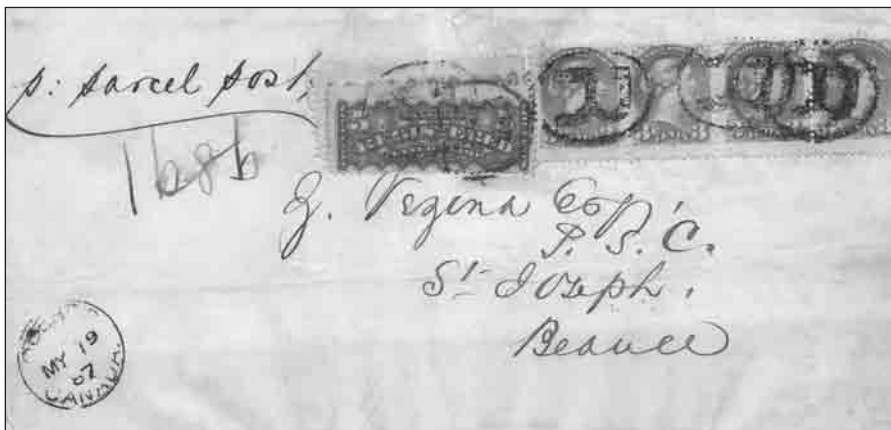 p: parcel post;
1686
REGISTERED
Z. Vezina Esqr
P. S. C.
St Joseph,
Beauce
MY 19
87
CANADA